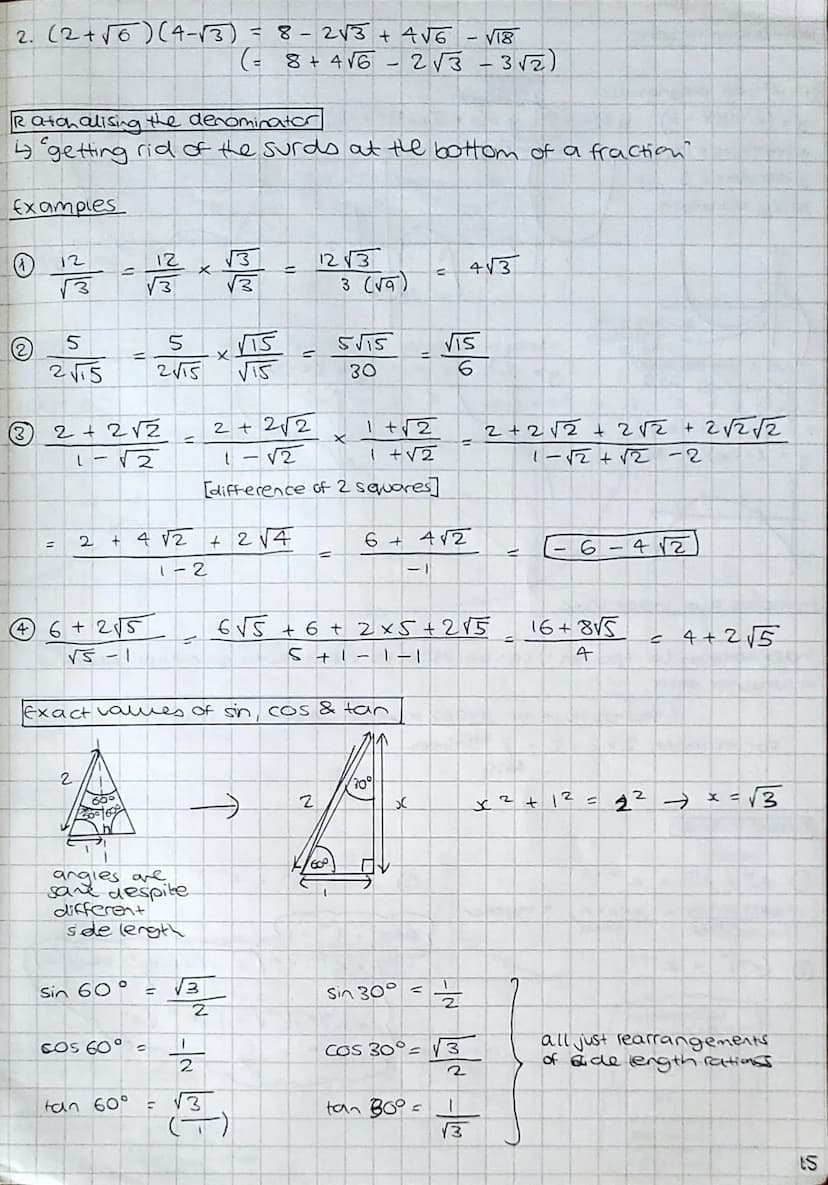 2. (2+√6)(4-√3) = 8 - 2√3 + 4√6 - √18
(= 8 + 4√6 - 2√3 - 3√2)
Rationalising the denominator
↳ "getting rid of the surds at the bottom of a fraction"
Examples
① 12/√3 = 12/√3 × √3/√3 = 12√3/3 (√9) = 4√3
② 5/2√15 = 5/2√15 × √15/√15 = 5√15/30 = √15/6
③ 2 + 2√2/1 - √2 = 2 + 2√2/1 - √2 × 1 + √2/1 + √2 = 2 + 2√2 + 2√2 + 2√2√2/1 - √2 + √2 - 2
[difference of 2 squares]
= 2 + 4√2 + 2√4/1 - 2 = 6 + 4√2/-1 = - 6 - 4√2
④ 6 + 2√5/√5 - 1 = 6√5 + 6 + 2×5 + 2√5/5 + 1 - 1 - 1 = 16 + 8√5/4 = 4 + 2√5
Exact values of sin, cos & tan
2 60° 60° 1
→
2 30° x 60° 1
x² + 1² = 2² → x = √3
angles are
same despite
different
side length
sin 60° = √3/2 sin 30° = 1/2
cos 60° = 1/2 cos 30° = √3/2
tan 60° = √3 (/1) tan 30° = 1/√3
all just rearrangements
of side length ratios
15